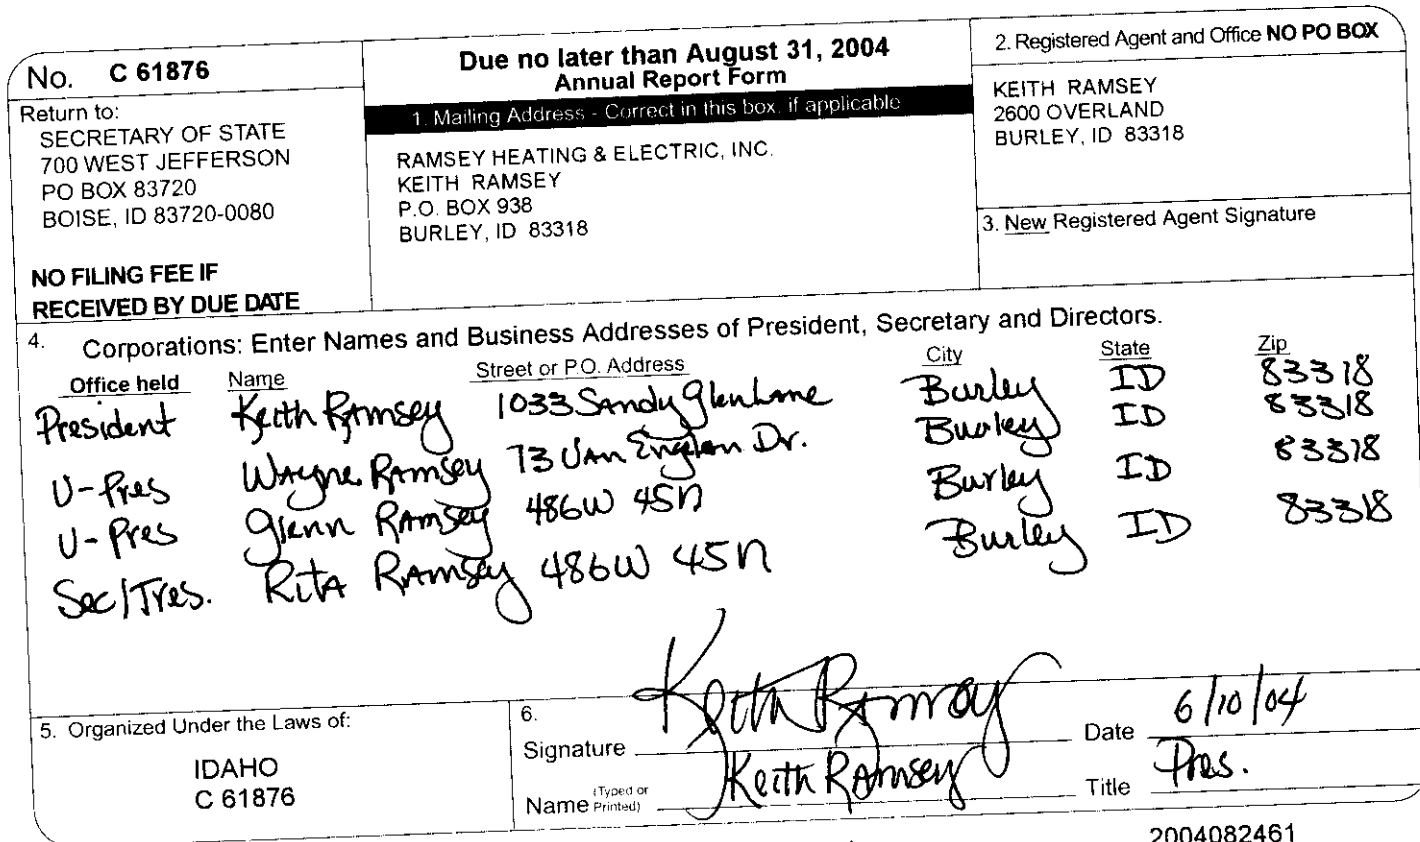 No. C 61876
Return to:
SECRETARY OF STATE
700 WEST JEFFERSON
PO BOX 83720
BOISE, ID 83720-0080
NO FILING FEE IF
RECEIVED BY DUE DATE
Due no later than August 31, 2004
Annual Report Form
1. Mailing Address - Correct in this box, if applicable
RAMSEY HEATING & ELECTRIC, INC.
KEITH RAMSEY
P.O. BOX 938
BURLEY, ID 83318
2. Registered Agent and Office NO PO BOX
KEITH RAMSEY
2600 OVERLAND
BURLEY, ID 83318
3. New Registered Agent Signature
4. Corporations: Enter Names and Business Addresses of President, Secretary and Directors.
Office held Name Street or P.O. Address City State Zip
President Keith Ramsey 1033 Sandy Glen Lane Burley ID 83318
V-Pres Wayne Ramsey 73 Van Englen Dr. Burley ID 83318
V-Pres Glenn Ramsey 486W 45N Burley ID 83318
Sec/Tres. Rita Ramsey 486W 45N Burley ID 83318
5. Organized Under the Laws of:
IDAHO
C 61876
6.
Signature Keith Ramsey Date 6/10/04
Name (Typed or Printed) Keith Ramsey Title Pres.
2004082461